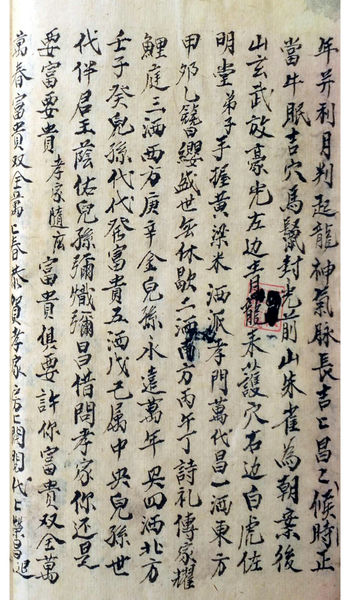 年并利月判起龍神氣脉長吉〻昌〻候時正
當牛眠吉穴馬鬣封先前山朱雀為朝案後
山玄武放豪光左边青龍來護穴右边白虎佐
明堂弟子手握黃梁米洒派孝門萬代昌一洒東方
甲夘乙簪纓盛世無休歇二洒南方丙午丁詩礼傳家耀
鯉庭三洒西方庚辛金兒孫永遠萬年興四洒北方
壬子癸兒孫代代發富貴五洒戊己屬中央兒孫世
代伴君王蔭佑兒孫彌熾彌昌借問孝家你还是
要富要貴孝家隨应富貴俱要許你富貴双全萬
萬春富貴双全萬〻春恭賀孝家房〻代〻榮昌退